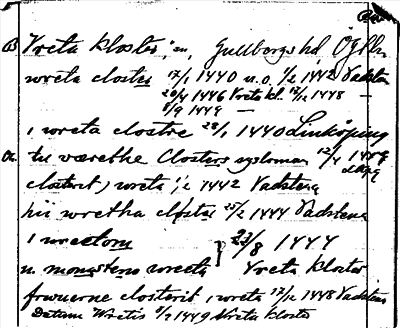 Vreta kloster, sn, Gullbergs hd, Ögtl.
wreta closter 17/1 1440 u.o. 1/2 1442 Vadstena
20/4 1446 Vreta kl. 12/12 1448 —
8/9 1449 —
i wreta clostre 28/1 1440 Linköping
tu wærethe Closters syslomen 12/4 1449
closterit j wreta 1/2 1442 Vadstena
hii wretha closter 25/2 1444 Vadstena
i wrectom } 23/8 1444
u. monasterio wreeta Vreta kloster
frwuerne closterit i wreta 12/12 1448 Vadstena
Datum Wretis 8/9 1449 Vreta kloster